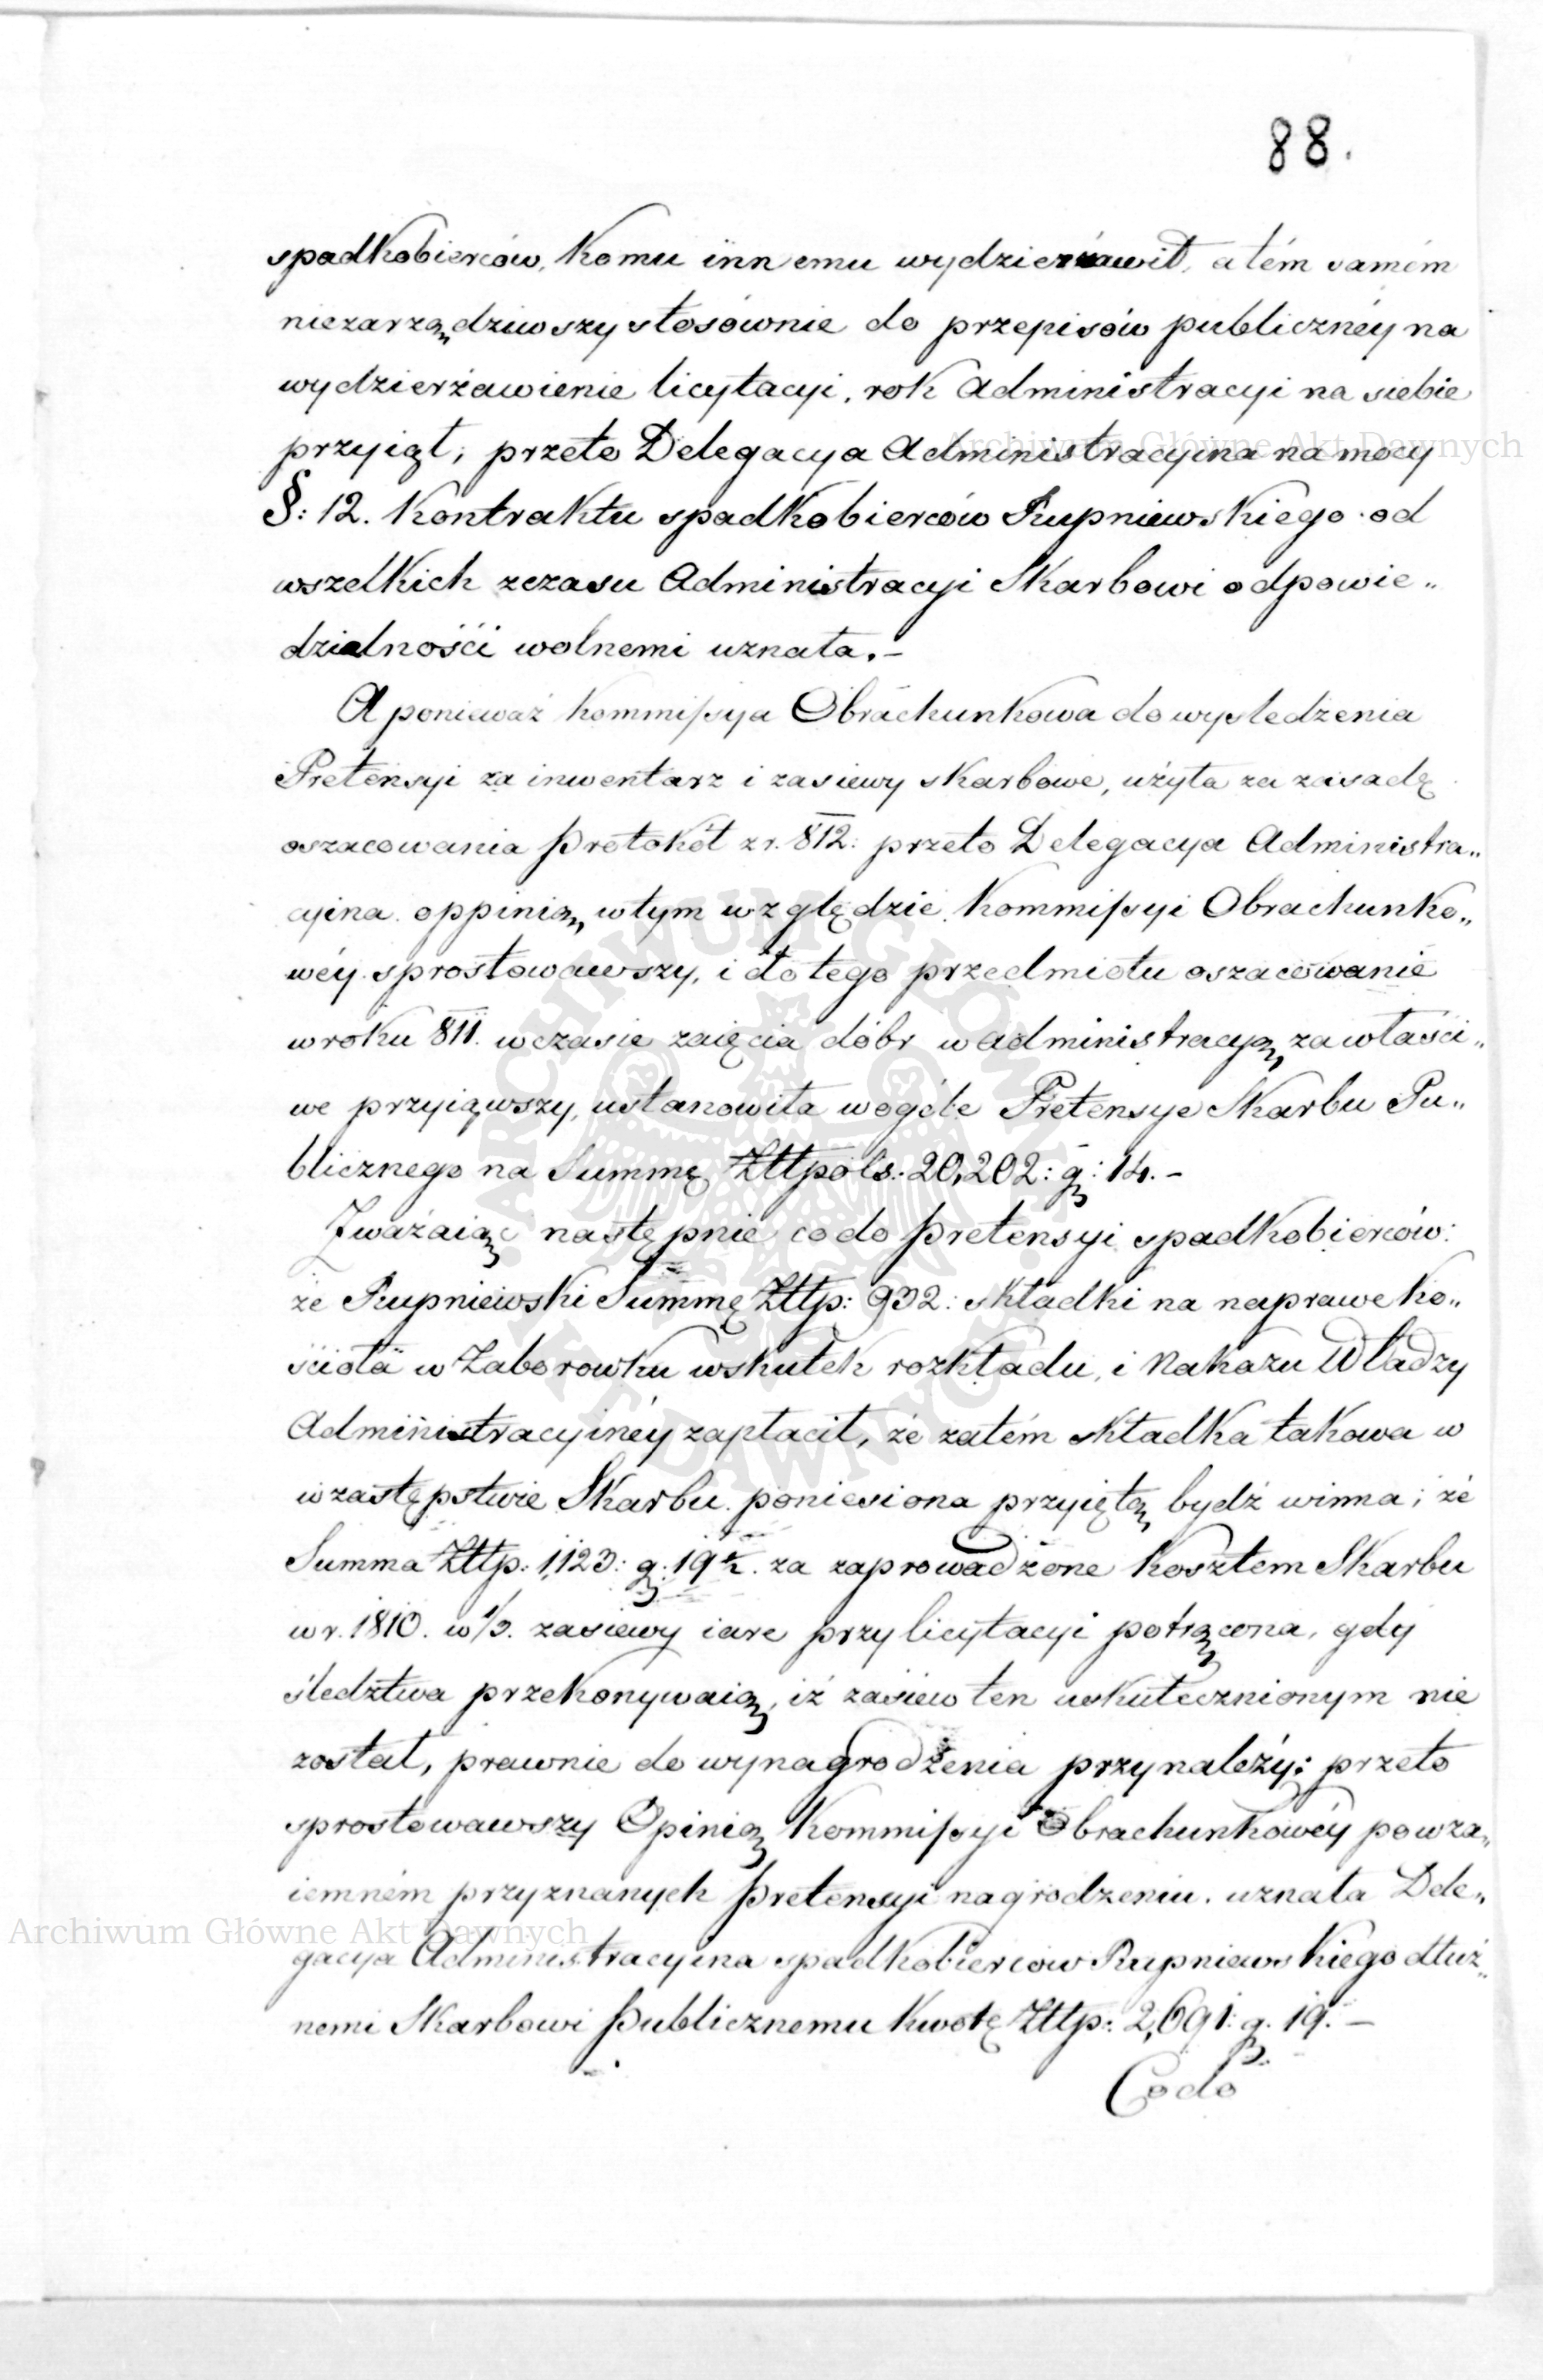 88.
spadkobierców, komu innemu wydzierżawił, a tém samém
niezarządziwszy stosównie do przepisów publicznéy na
wydzierżawienie licytacyi, rok Administracyi na siebie
przyiął; przeto Delegacya Administracyina na mocy
§: 12. Kontraktu spadkobierców Rupniewskiego od
wszelkich zczasu Administracyi Skarbowi odpowie„
dzialnośći wolnemi uznała.–
A ponieważ Kommissya Obrachunkowa do wysledzenia
Pretensyi za inwentarz i zasiewy skarbowe, użyła za zasadę
oszacowania protokół z r. 812: przeto Delegacya Administra„
cyina oppinią wtym względzie Kommissyi Obrachunko„
wéy sprostowawszy, i do tego przedmiotu oszacowanie
w roku 811. wczasie zaięcia dóbr w administracyą za właści„
we przyiąwszy, ustanowiła wogóle Pretensye Skarbu Pu„
blicznego na Summę Złłpols: 20,202: g: 14.–
Zważaiąc następnie codo pretensyi spadkobierców:
że Rupniewski Summę Złłp: 932: składki na naprawe ko„
ścioła w Zaborowku wskutek rozkładu, i Nakazu Władzy
Administracyinéy zapłacił, że zatém składka takowa w
w zastępstwie Skarbu poniesiona przyiętą bydź winna; że
Summa Złłp: 1,123: g: 19½. za zaprowadzone kosztem Skarbu
w r. 1810. w ⅓. zasiewy iare przy licytacyi potrącona, gdy
śledztwa przekonywaią, iż zasiew ten uskutecznionym nie
został, prawnie do wynagrodzenia przynależy: przeto
sprostowawszy Opinią Kommissyi Obrachunkowéy powza„
iemném przyznanych pretensyi nagrodzeniu. uznała Dele„
gacya Administracyina spadkobierców Rupniewskiego dłuż„
nemi Skarbowi publicznemu kwotę Złłp: 2,691: g. 19.–
Codo
Archiwum Główne Akt Dawnych
Archiwum Główne Akt Dawnych
ARCHIWUM GŁÓWNE AKT DAWNYCH